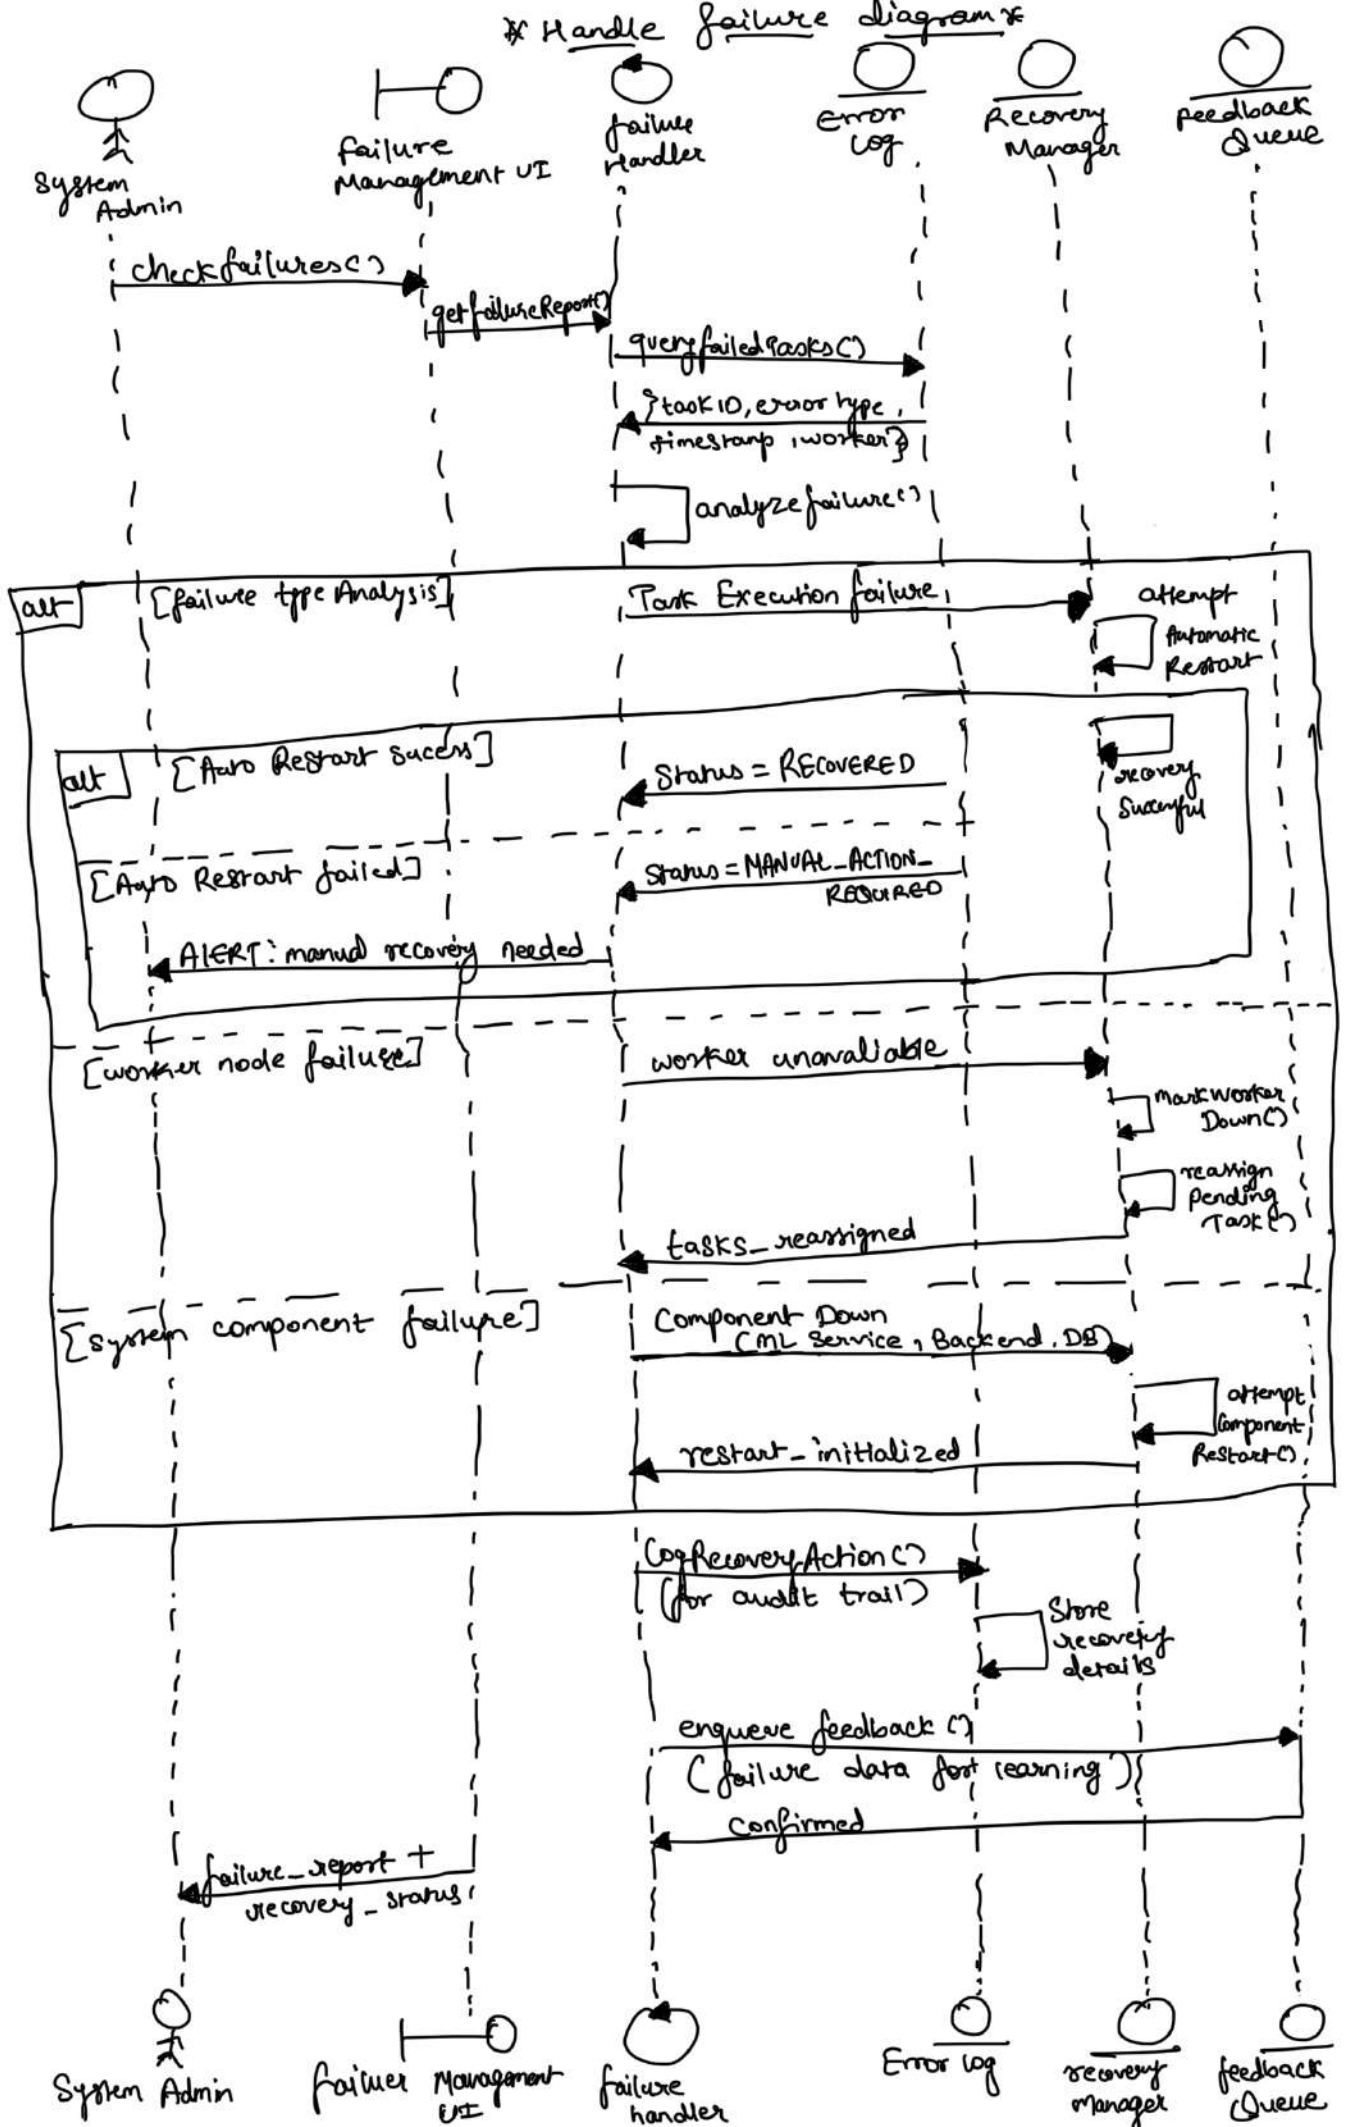 * Handle failure diagram *
System
Admin
failure
Management UI
failure
Handler
Error
Log
Recovery
Manager
Feedback
Queue
checkfailures()
getfailureReport()
queryfailedTasks()
{taskID, error type,
timestamp, worker}
analyzefailure()
alt
[failure type Analysis]
Task Execution failure
attempt
Automatic
Restart
alt
[Auto Restart Sucess]
Status = RECOVERED
recovery
Successful
[Auto Restart failed]
Status = MANUAL_ACTION_
REQUIRED
AlERT: manual recovery needed
[worker node failure]
worker unavaliable
markworker
Down()
reassign
Pending
Task()
tasks_reassigned
[System component failure]
Component Down
(ML Service, Backend, DB)
attempt
Component
Restart()
restart_initialized
LogRecoveryAction()
(for audit trail)
Store
recovery
details
enqueue feedback ()
(failure data for learning)
confirmed
failure_report +
recovery_status
System Admin
failuer Management
UI
failure
handler
Error log
recovery
Manager
feedback
Queue